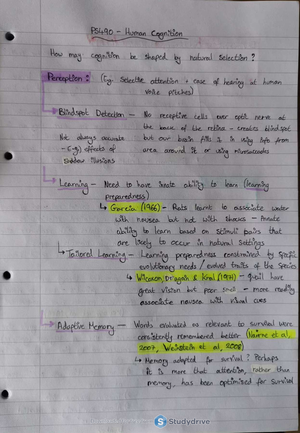 PS490 - Human Cognition
How may cognition be shaped by natural selection?
Perception: (Eg. Selective attention + ease of hearing at human
voice pitches)
Blindspot Detection - No receptive cells over optic nerve at
the back of the retina - creates blindspot
Not always accurate but our brain fills it in using info from
- E.g) effects of area around it or using microsaccades
shadow illusions
Learning - Need to have innate ability to learn (learning
preparedness)
↳ Garcia (1966) - Rats learnt to associate water
with nausea but not with shocks - innate
ability to learn based on stimuli pairs that
are likely to occur in natural settings
↳ Tailored Learning - Learning preparedness constrained by specific
evolutionary needs / evolved traits of the species
↳ Wilcoxon, Dragoin & Kral (1971) - Quail have
great vision but poor smell - more readily
associate nausea with visual cues
Adaptive Memory - Words evaluated as relevant to survival were
consistently remembered better (Nairne et al,
2007, Weinstein et al, 2008)
↳ Memory adapted for survival? Perhaps
it is more that attention, rather than
memory, has been optimised for survival
Studydrive